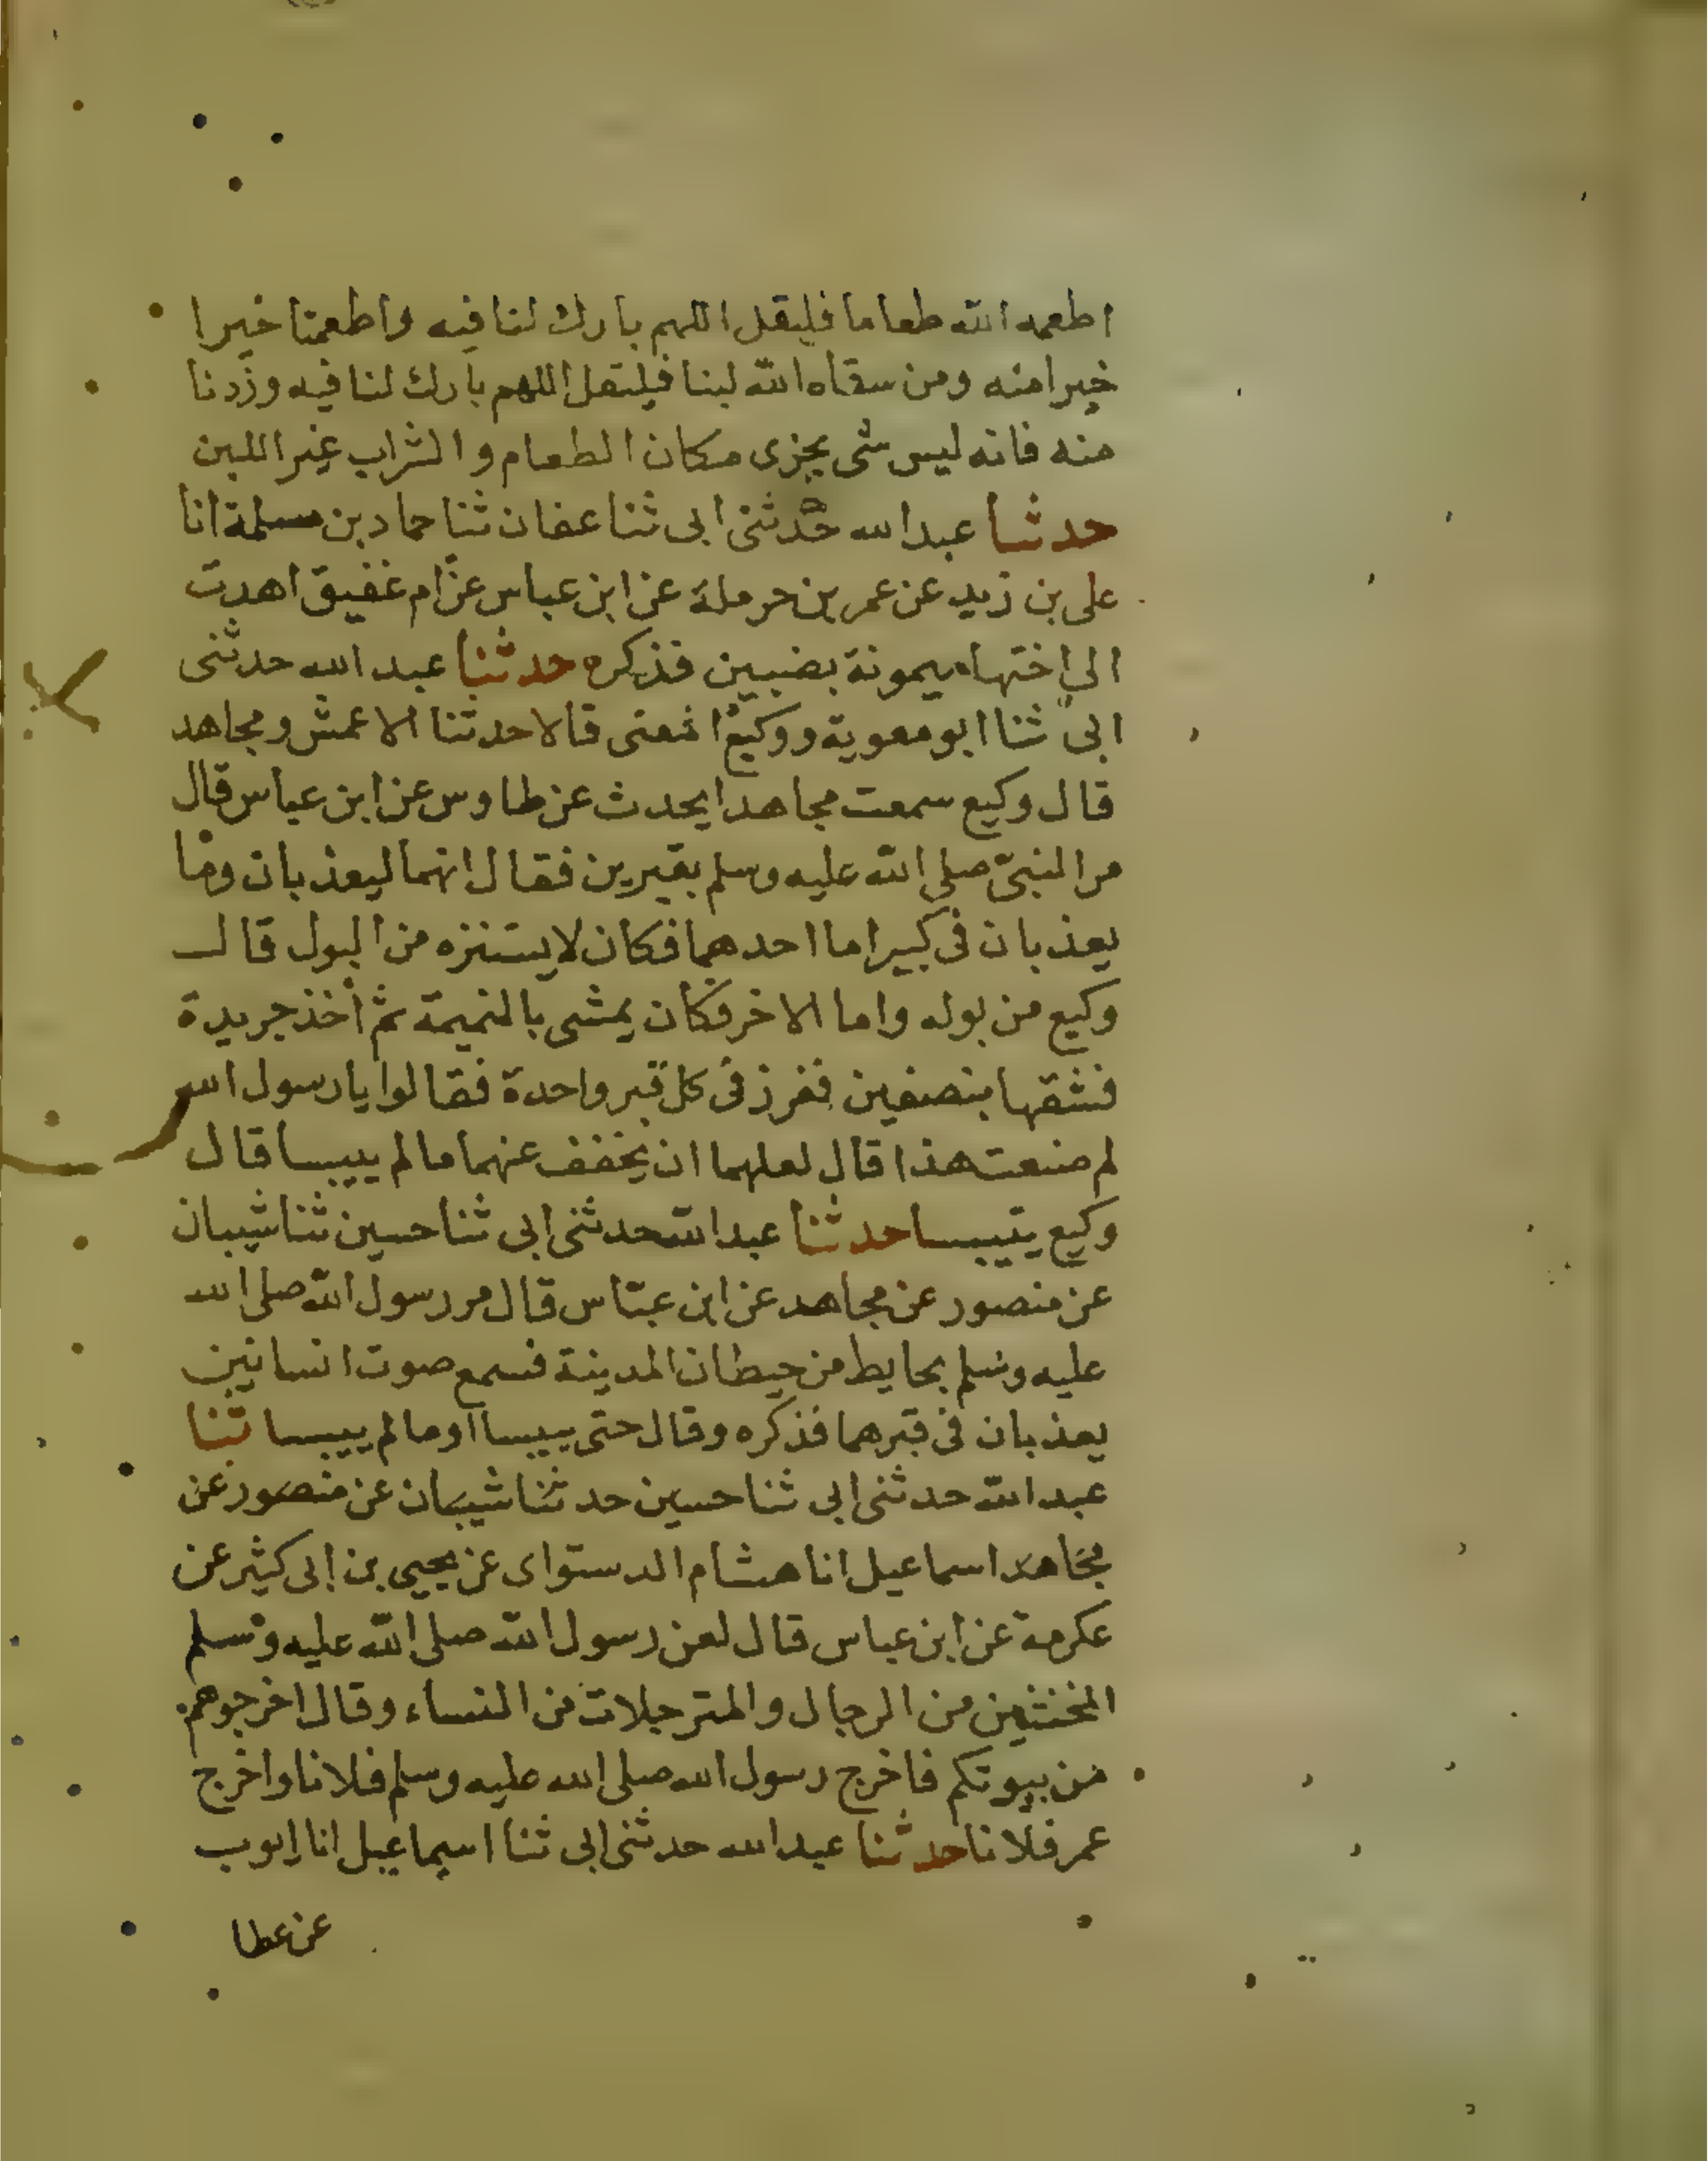 اطعمه الله طعاما فليقل اللهم بارك لنا فيه واطعمنا خيرا
خيرا منه ومن سقاه الله لبنا فليقل اللهم بارك لنا فيه وزدنا
منه فانه ليس شى يجزى مكان الطعام والشراب غير اللبن
حدثنا عبد الله حدثنى ابى ثنا عفان ثنا حماد بن سلمة انا
على بن زيد عن عمر بن حرملة عن ابن عباس عن ام غفيق اهدت
الى اختها ميمونة بضبين فذكره حدثنا عبد الله حدثنى
ابى ثنا ابو معوية ووكيع المعنى قالا حدثنا الاعمش ومجاهد
قال وكيع سمعت مجاهدا يحدث عن طاوس عن ابن عباس قال
مر النبى صلى الله عليه وسلم بقبرين فقال انهما ليعذبان وما
يعذبان فى كبير اما احدهما فكان لا يستنزه من البول قال
وكيع من بوله واما الاخر فكان يمشى بالنميمة ثم أخذ جريدة
فشقها بنصفين فغرز فى كل قبر واحدة فقالوا يا رسول الله
لم صنعت هذا قال لعلهما ان يخفف عنهما ما لم ييبسا قال
وكيع يتيبسا حدثنا عبد الله حدثنى ابى ثنا حسين ثنا شيبان
عن منصور عن مجاهد عن ابن عباس قال مر رسول الله صلى الله
عليه وسلم بحايط من حيطان المدينة فسمع صوت انسانين
يعذبان فى قبرهما فذكره وقال حتى ييبسا او ما لم ييبسا ثنا
عبد الله حدثنى ابى ثنا حسين حدثنا شيبان عن منصور عن
مجاهد اسماعيل انا هشام الدستواى عن يحيى بن ابى كثير عن
عكرمة عن ابن عباس قال لعن رسول الله صلى الله عليه وسلم
المخنثين من الرجال والمترجلات من النساء وقال اخرجوهم
من بيوتكم فاخرج رسول الله صلى الله عليه وسلم فلانا واخرج
عمر فلانا حدثنا عبد الله حدثنى ابى ثنا اسماعيل انا ايوب
عن عطا